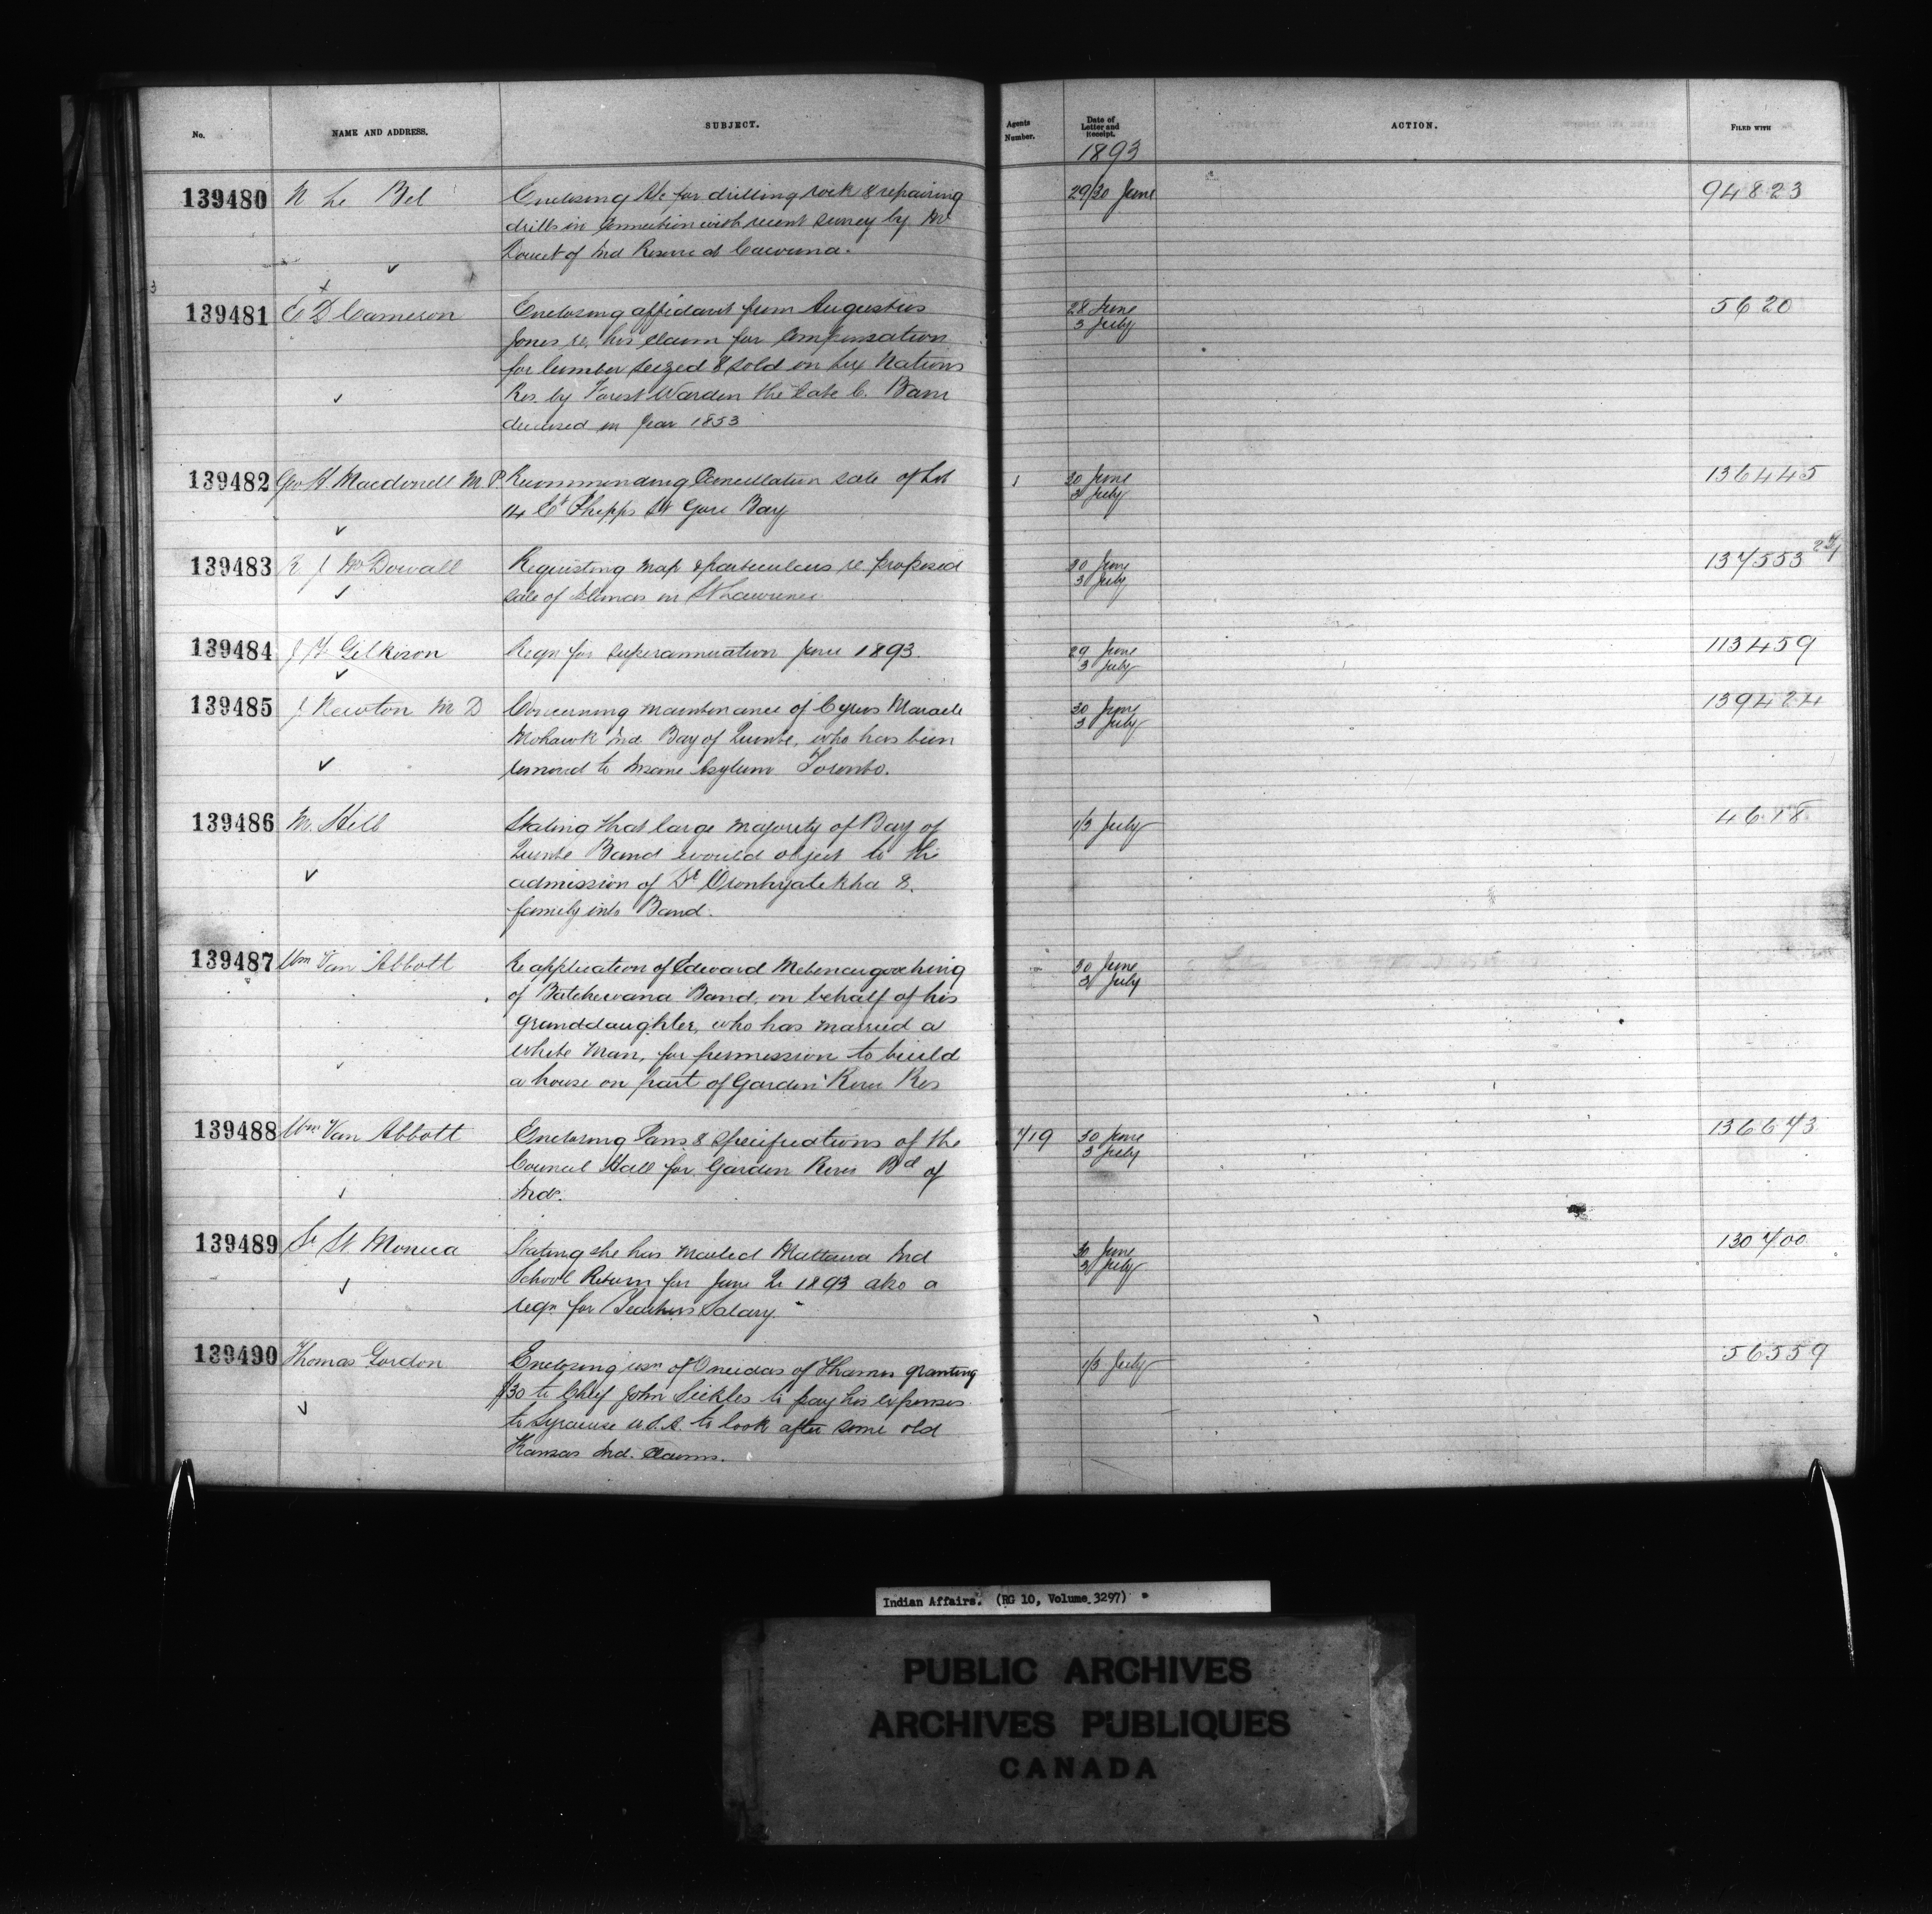 No. NAME AND ADDRESS. SUBJECT. Agents Number. Date of Letter and Receipt. ACTION. FILED WITH
1893
139480 N Le Bel Enclosing a/c for drilling rock & repairing 29/30 June 94823
drills in connection with recent survey by Mr
Doucet of Ind Reserve at Cacouna.
139481 E D Cameron Enclosing affidavit from Augustus 28 June 5620
Jones re, his claim for Compensation 3 July
for lumber seized & sold on Six Nations
Res. by Forest Warden the late C. Bain
deceased in year 1853
139482 Geo H. Macdonell M P. Recommending Cancellation sale of Lot 1 30 June 136445
14 Et Phipps St Gore Bay 3 July
139483 R J McDowall Requesting map & particulars re proposed 30 June 137553
sale of Islands in St Lawrence 3 July
139484 J H Gilkison Reqn for superannuation June 1893. 29 June 113459
3 July
139485 J Newton M D Concerning maintenance of Cyrus Maracle 30 June 139424
Mohawk Ind Bay of Quinte, who has been 3 July
removed to Insane Asylum Toronto.
139486 M. Hill Stating that large majority of Bay of 1/3 July
Quinte Band would object to the
admission of Dr Oronhyatekha &
family into Band.
139487 Wm Van Abbott Re application of Edward 30 June
of Batchewana Band, on behalf of his 3 July
granddaughter, who has married a
white man, for permission to build
a house on part of Garden River Res
139488 Wm Van Abbott Enclosing Pans & Specifications of the 719 30 June 136673
Council Hall for Garden River Bd of 3 July
Inds.
139489 Sr St. Monica Stating she has mailed Mattawa Ind 30 June 130700
School Return for June Qr 1893 also a 3 July
reqn for Teachers Salary.
139490 Thomas Gordon Enclosing resn of Oneidas of Thames granting 1/3 July 56559
$30 to Chief John Sickles to pay his expenses
to Syracuse U.S.A. to look after some old
Kansas Ind. Claims.
Indian Affairs. (RG 10, Volume 3297)
PUBLIC ARCHIVES
ARCHIVES PUBLIQUES
CANADA